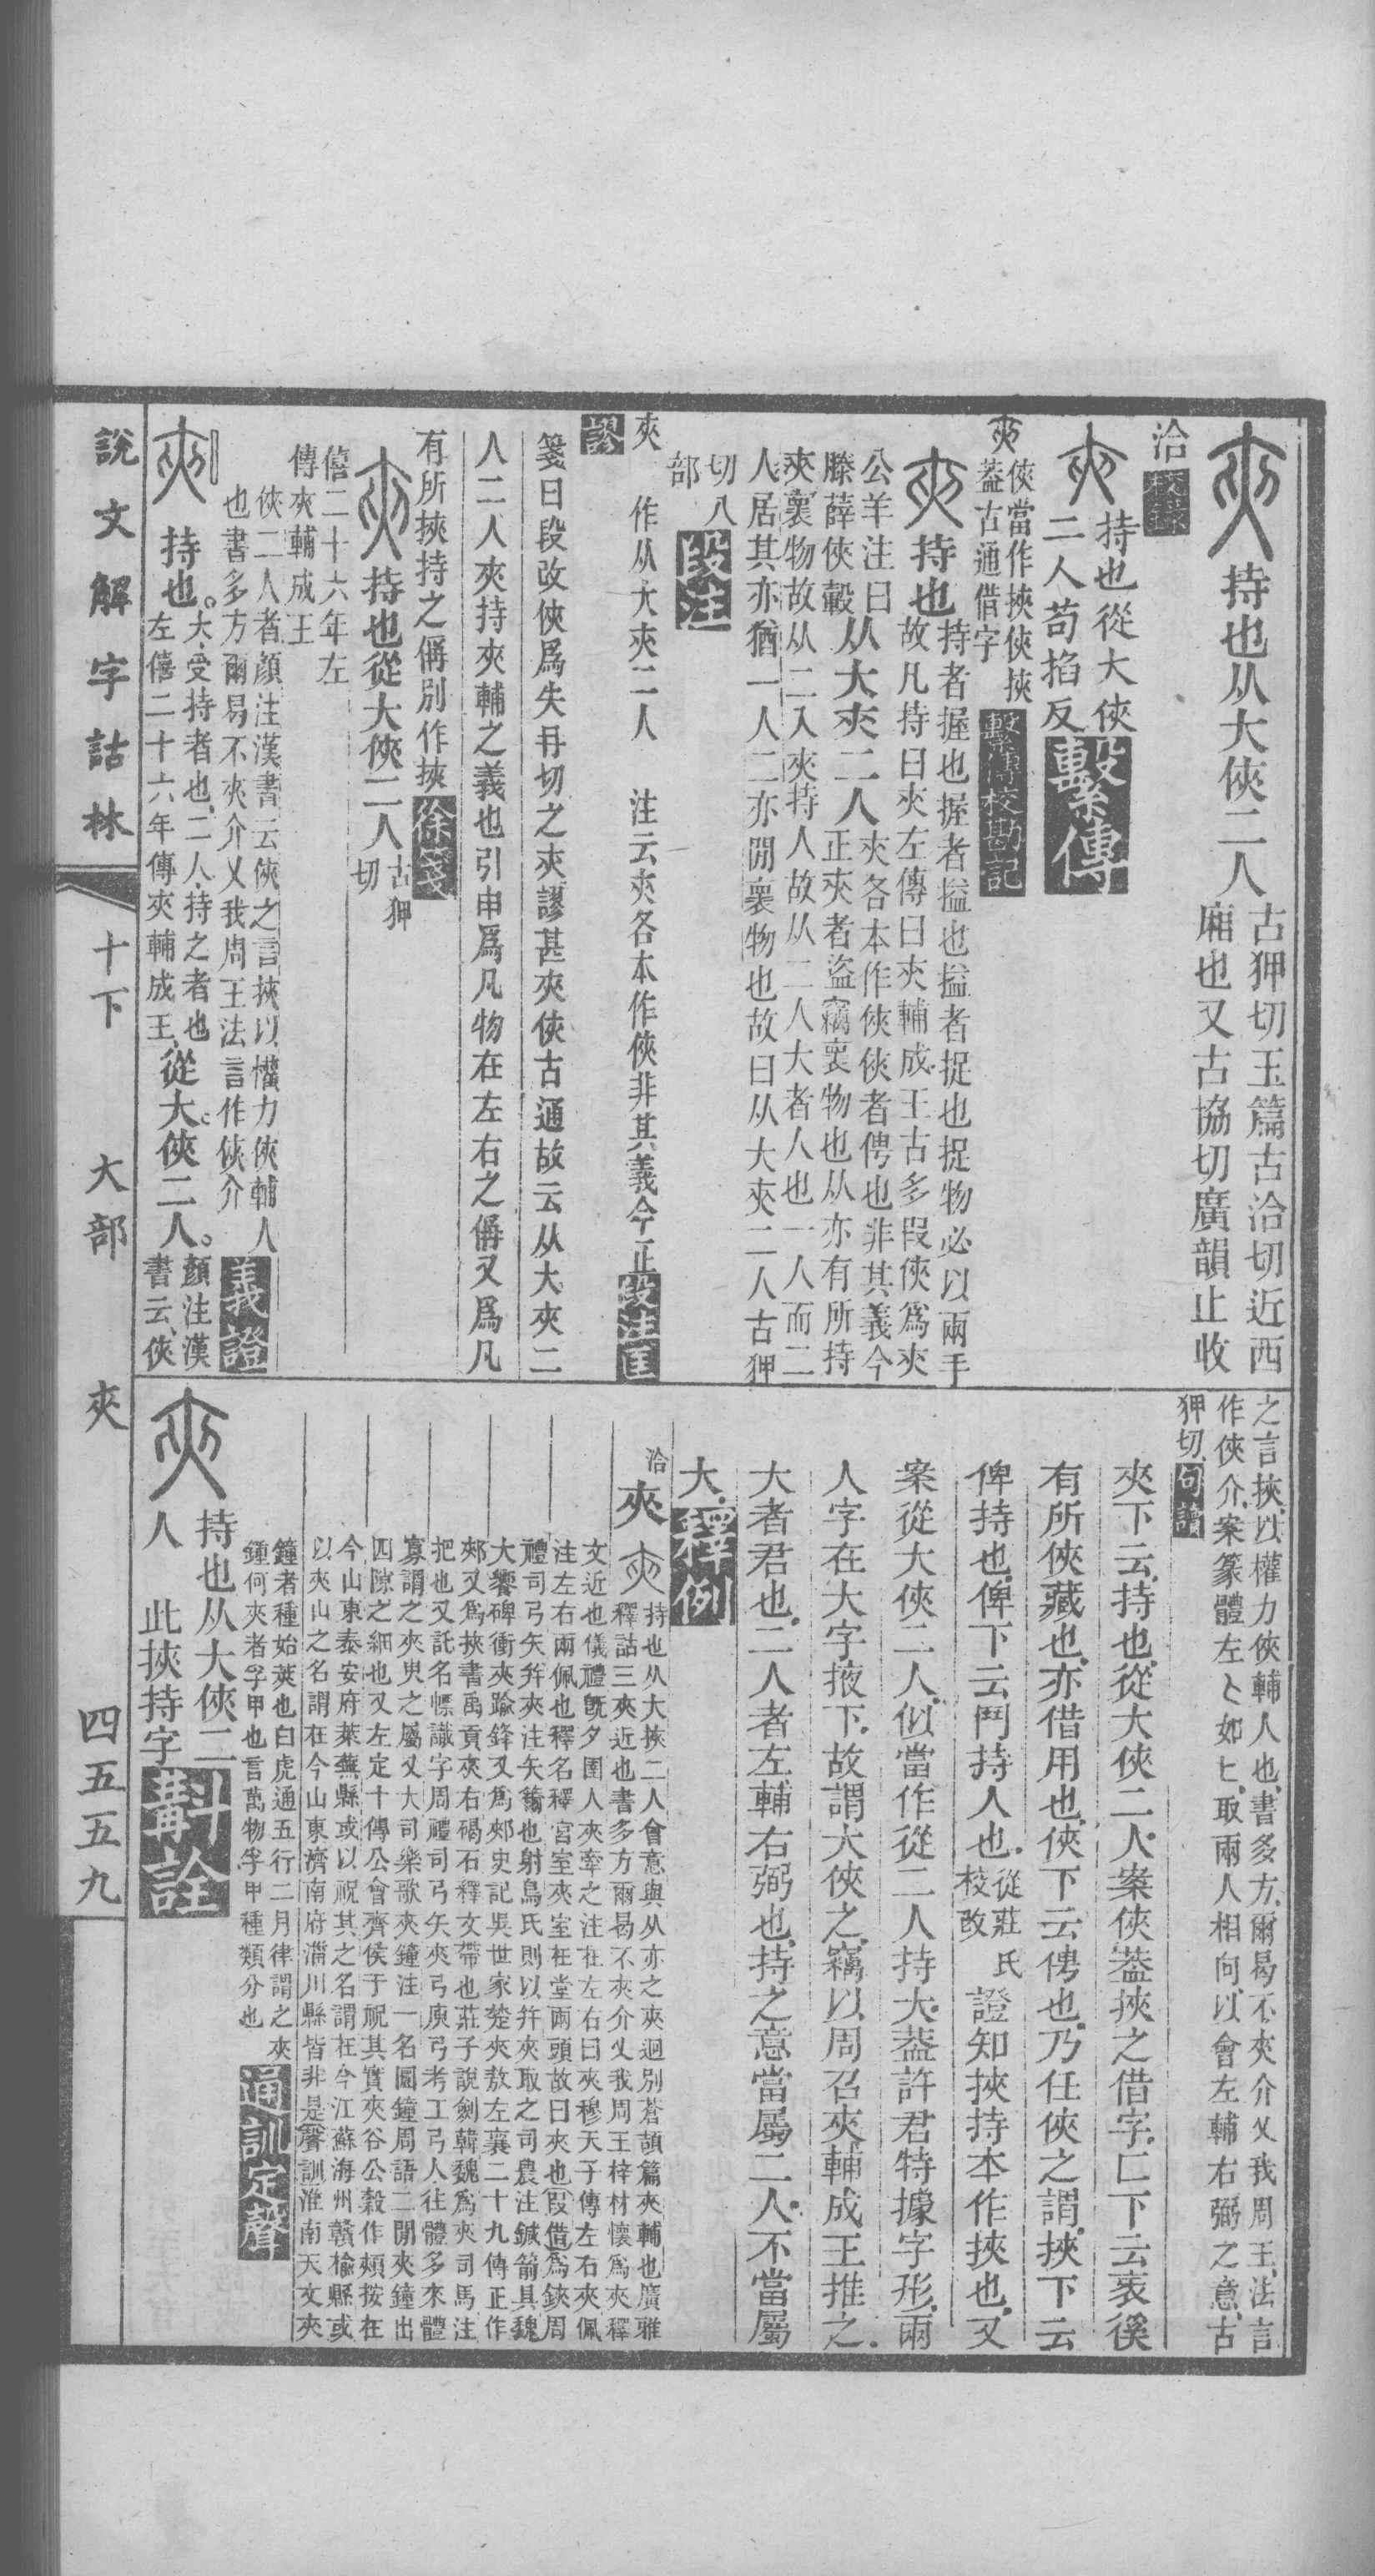 夾 持也从大俠二人 古狎切玉篇古洽切近西
廂也又古協切廣韻止收
洽 校錄
夾 持也從大俠
二人苟掐反 繫傳
夾 俠當作挾俠挾
葢古通借字 繫傳校勘記
夾 持也 持者握也握者搤也搤者捉也捉物必以兩手
故凡持曰夾左傳曰夾輔成王古多叚俠爲夾
公羊注曰
滕薛俠轂 从大夾二人 夾各本作俠俠者俜也非其義今
正夾者盜竊褱物也从亦有所持
夾褱物故从二入夾持人故从二人大者人也一人而二
人居其亦猶一人二亦閒褱物也故曰从大夾二人古狎
切八
部 段注
夾 作从大夾二人 注云夾各本作俠非其義今正 段注匡
謬
箋曰段改俠爲失冉切之夾謬甚夾俠古通故云从大夾二
人二人夾持夾輔之義也引申爲凡物在左右之偁又爲凡
有所挾持之偁別作挾 徐箋
夾 持也從大俠二人 古狎
切
僖二十六年左
傳夾輔成王
俠二人者顏注漢書云俠之言挾以權力俠輔人
也書多方爾易不夾介乂我周王法言作俠介 義證
夾 持也。 大、受持者也、二人、持之者也
左僖二十六年傳夾輔成王、 從大。俠二人。 顏注漢
書云、俠
之言挾、以權力俠輔人也、書多方、爾曷不夾介乂我周王、法言
作俠介、案篆體左𠤎如匕、取兩人相向、以會左輔右弼之意、古
狎切、 句讀
夾下云、持也、從大俠二人、案俠葢挾之借字、匸下云衺徯
有所俠藏也、亦借用也、俠下云俜也、乃任俠之謂、挾下云
俾持也、俾下云門持人也、 從莊氏
校改 證知挾持本作挾也、又
案從大俠二人、似當作從二人持大、葢許君特據字形、兩
人字在大字掖下、故謂大俠之、竊以周召夾輔成王推之、
大者君也、二人者左輔右弼也、持之意當屬二人、不當屬
大、 釋例
洽
夾 夾 持也从大挾二人會意與从亦之夾迥別蒼頡篇夾輔也廣雅
釋詁三夾近也書多方爾曷不夾介乂我周王梓材懷爲夾釋
文近也儀禮旣夕圉人夾牽之注在左右曰夾穆天子傳左右夾佩
注左右兩佩也釋名釋宮室夾室在堂兩頭故曰夾也叚借爲鋏周
禮司弓矢幷夾注矢籋也射鳥氏則以幷夾取之司農注鍼箭具魏
大饗碑衝夾踰鋒又爲郟史記吳世家楚夾敖左襄二十九傳正作
郟又爲挾書禹貢夾右碣石釋文帶也莊子說劍韓魏爲夾司馬注
把也又託名幖識字周禮司弓矢夾弓庾弓考工弓人往體多來體
寡謂之夾臾之屬又大司樂歌夾鐘注一名圜鐘周語二閒夾鐘出
四隙之細也又左定十傳公會齊侯于祝其實夾谷公穀作頰按在
今山東泰安府萊蕪縣或以祝其之名謂在今江蘇海州贛楡縣或
以夾山之名謂在今山東濟南府淄川縣皆非是聲訓淮南天文夾
鐘者種始莢也白虎通五行二月律謂之夾
鐘何夾者孚甲也言萬物孚甲種類分也 通訓定聲
夾 持也从大俠二
人 此挾持字 斠詮
說文解字詁林 十下 大部 夾 四五五九